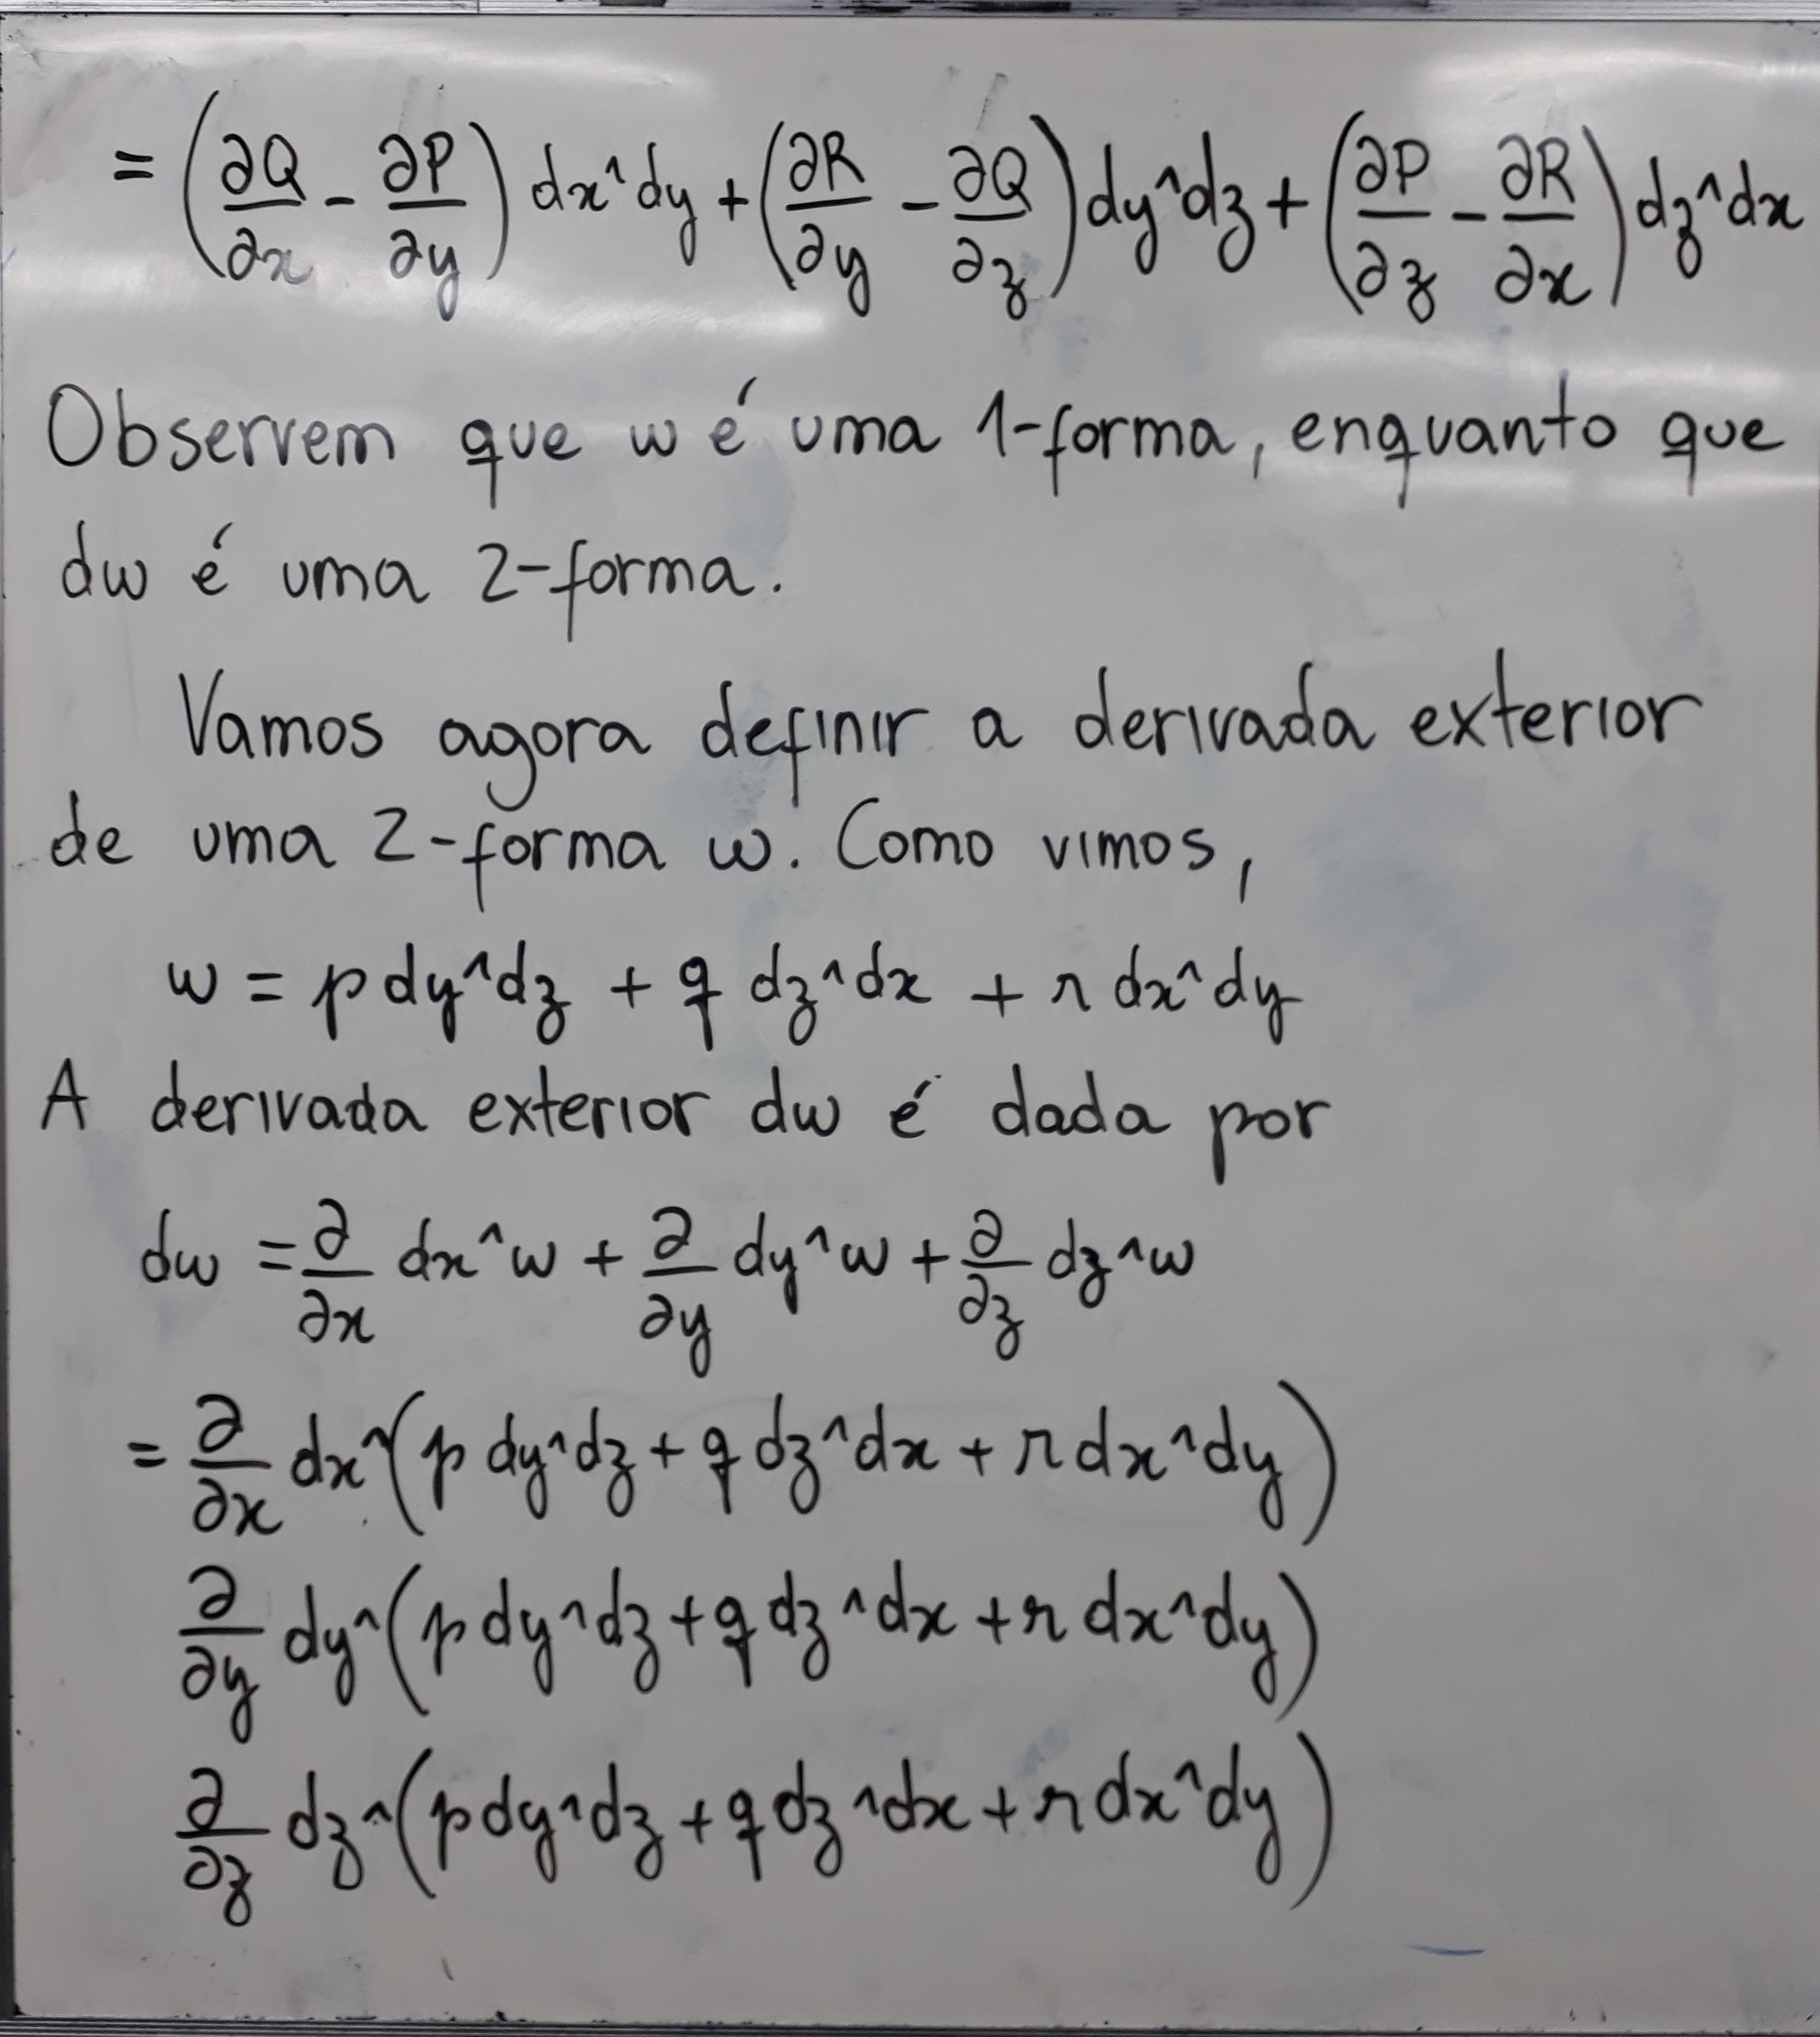 = (∂Q/∂x - ∂P/∂y) dx^dy + (∂R/∂y - ∂Q/∂z) dy^dz + (∂P/∂z - ∂R/∂x) dz^dx
Observem que w é uma 1-forma, enquanto que
dw é uma 2-forma.
Vamos agora definir a derivada exterior
de uma 2-forma w. Como vimos,
w = p dy^dz + q dz^dx + r dx^dy
A derivada exterior dw é dada por
dw = ∂/∂x dx^w + ∂/∂y dy^w + ∂/∂z dz^w
= ∂/∂x dx^(p dy^dz + q dz^dx + r dx^dy)
∂/∂y dy^(p dy^dz + q dz^dx + r dx^dy)
∂/∂z dz^(p dy^dz + q dz^dx + r dx^dy)